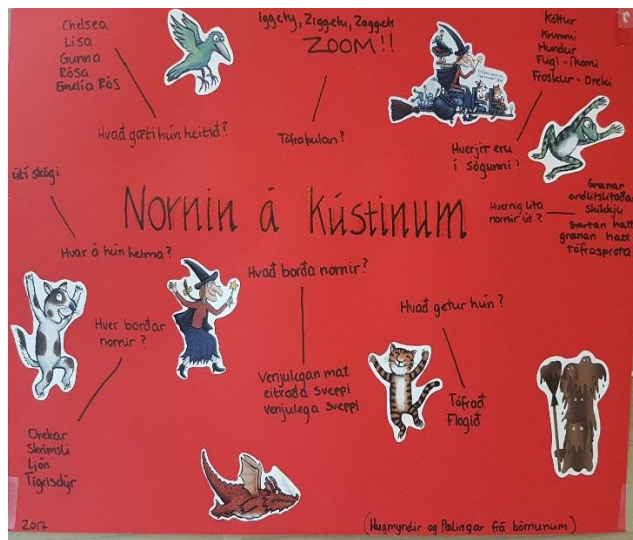 Chelsea
Lisa
Gunna
Rósa
Emelía Rós
Hvað gæti hún heitið?
Iggety, Ziggety, Zaggety
ZOOM!!
Töfraþulan?
Köttur
Krummi
Hundur
Fugl - íkorni
Froskur - Dreki
Hverjir eru
í sögunni?
úti skógi
Hvar á hún heima?
Nornin á Kústinum
Hvernig líta
nornir út?
Grænar
andlitslitaða
skikkju
svartan hatt
grænan hatt
Töfrasprota
Hvað borða nornir?
Venjulegan mat
eitraða sveppi
venjulega sveppi
Hvað getur hún?
Töfrað
Flogið
Hver borðar
nornir?
Drekar
Skrímsli
Ljón
Tígrisdýr
2017
(Hugmyndir og Pælingar frá börnunum)